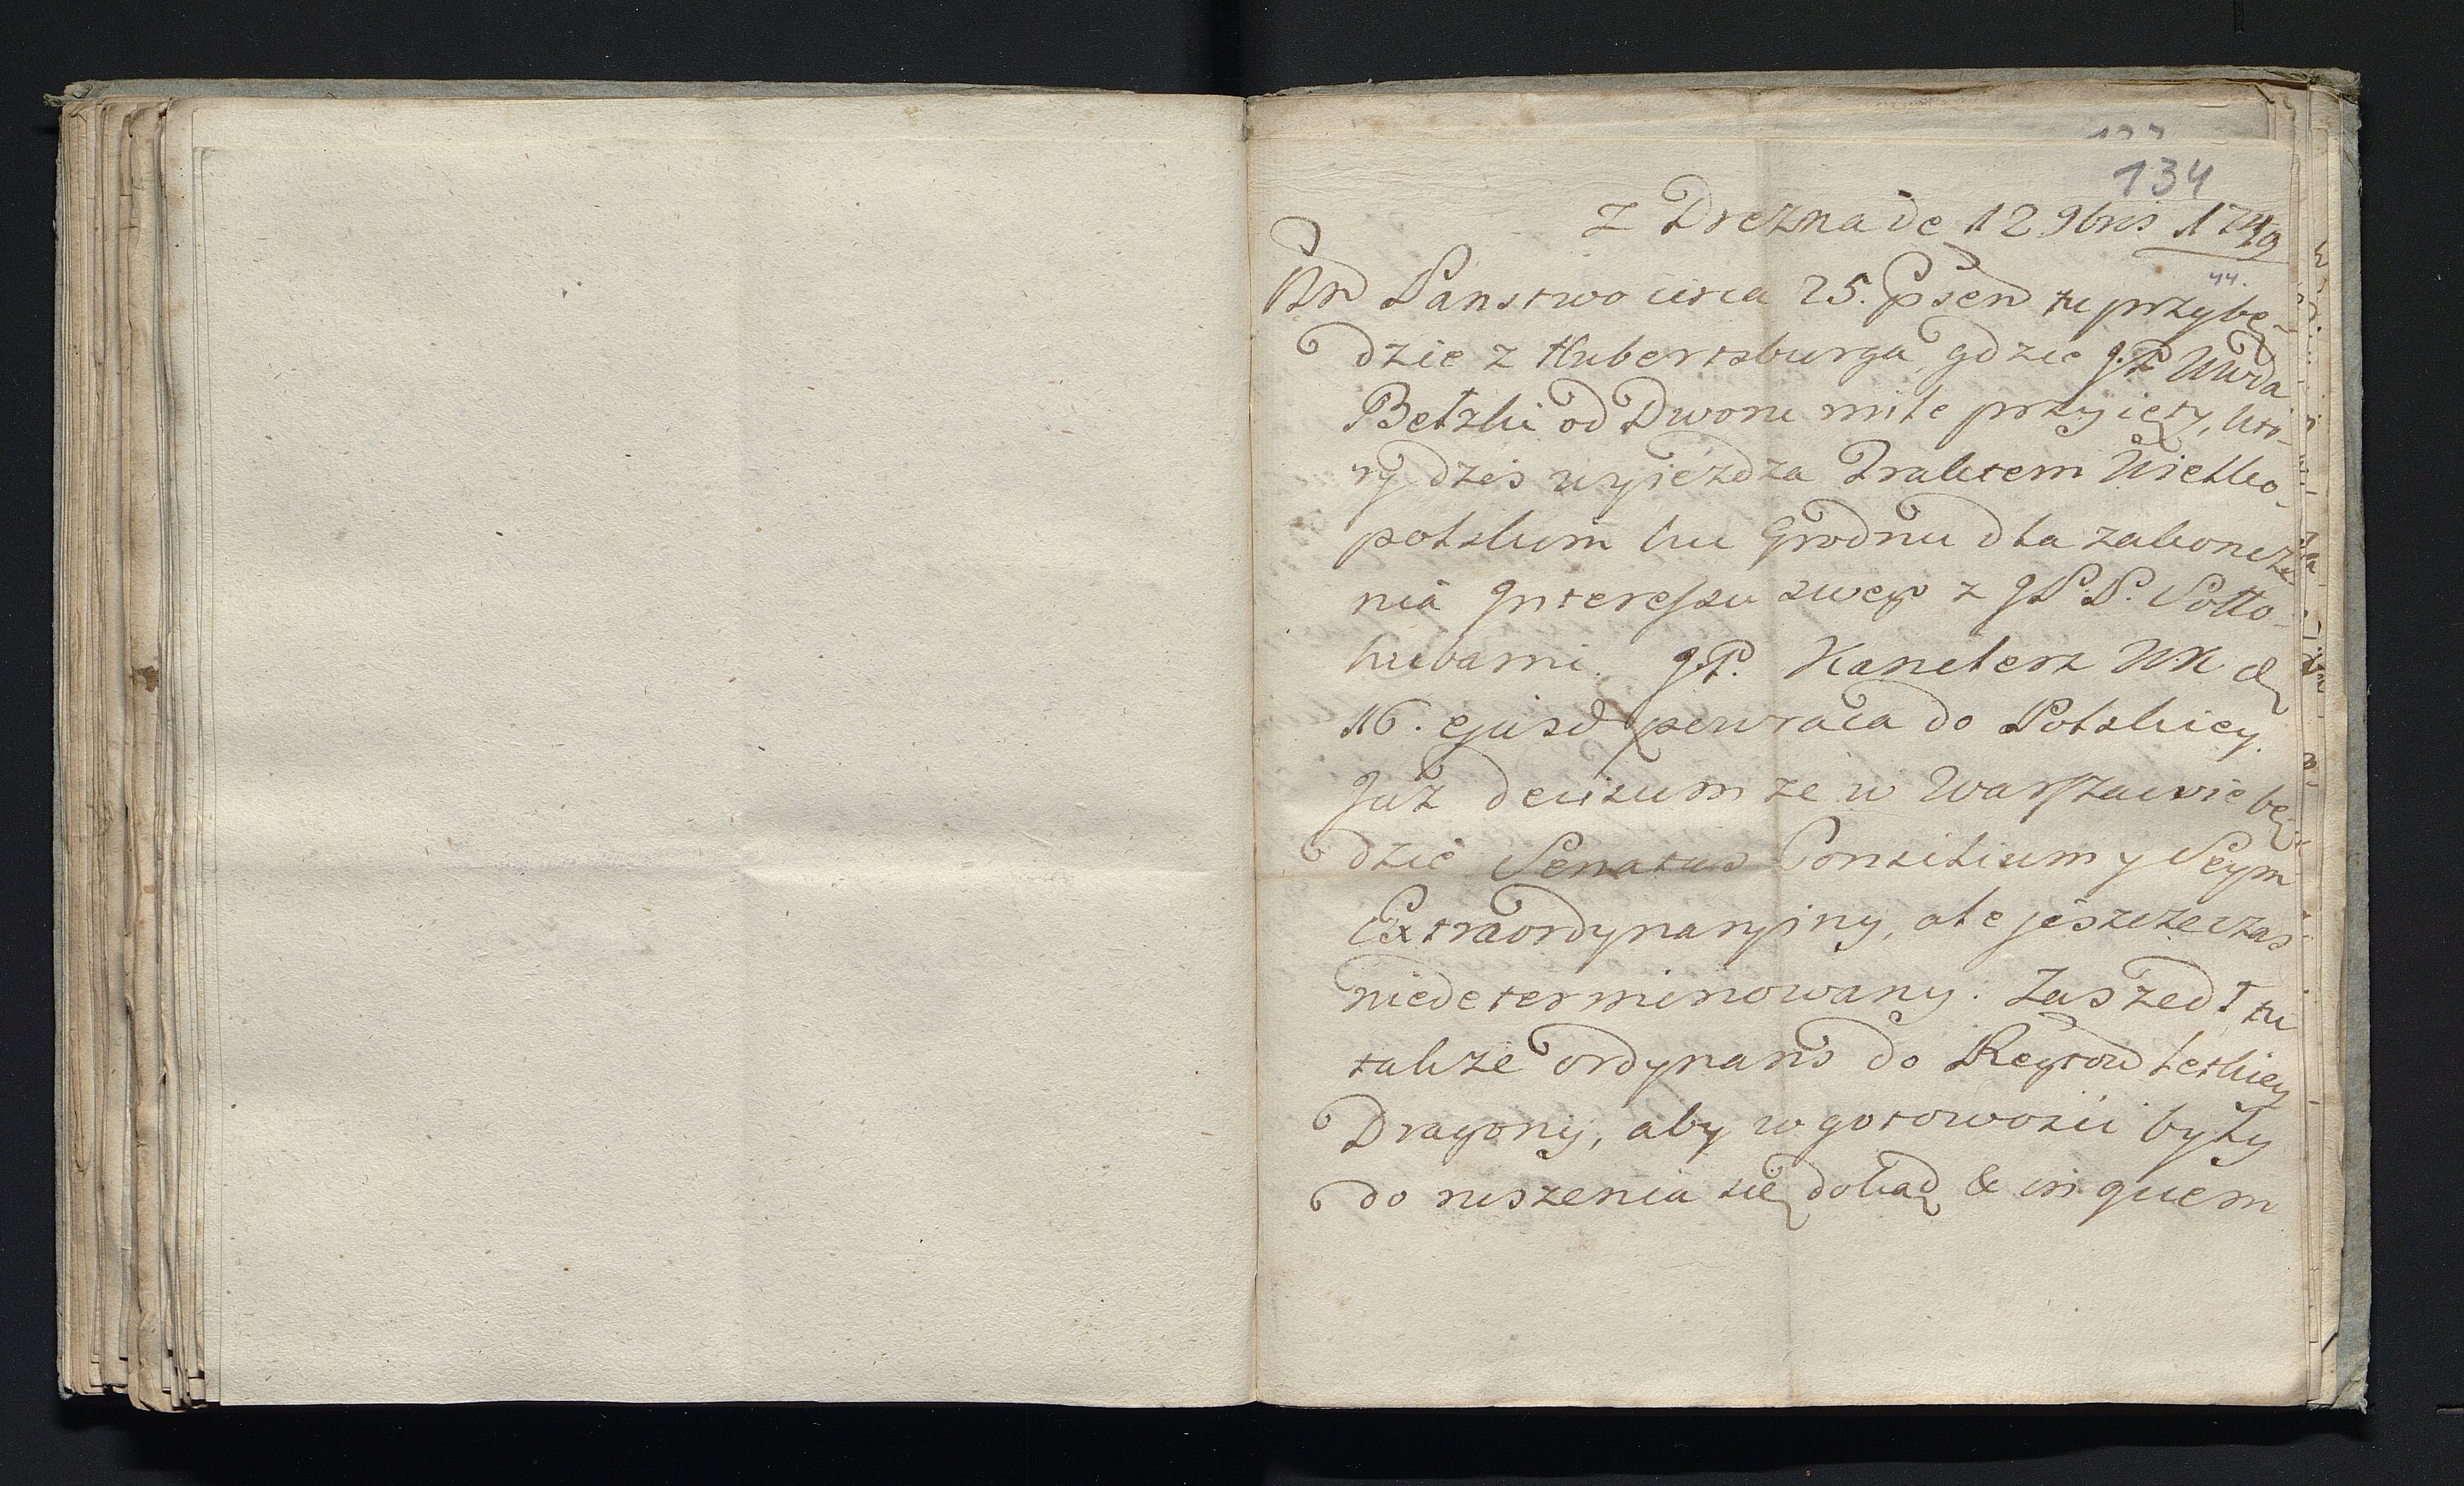 134
Z Drezna de 12 9bris 1749
44.
Państwo circa 25. psen tu przybę-
dzie z Hubertsburga, gdzie J.P. Wwda
Bełzki od Dworu mile przyięty, kto-
ry dzis wyieżdza Traktem Wielko-
polskim ku Grodnu dla zakoncze-
nia Interessu swego z J.P.P. Sołło-
hubami. J.P. Kanclerz W.K. d
16. ejusd powraca do Polskiey.
Już decisum że w Warszawie bę-
dzie Senatus Consilium y Seym
Extraordynaryiny, ale jeszcze czas
niedeterminowany. Zaszedł tu
także ordynans do Reytow letkiey
Dragonij, aby w gotowosci były
do ruszenia się dokąd & in quem